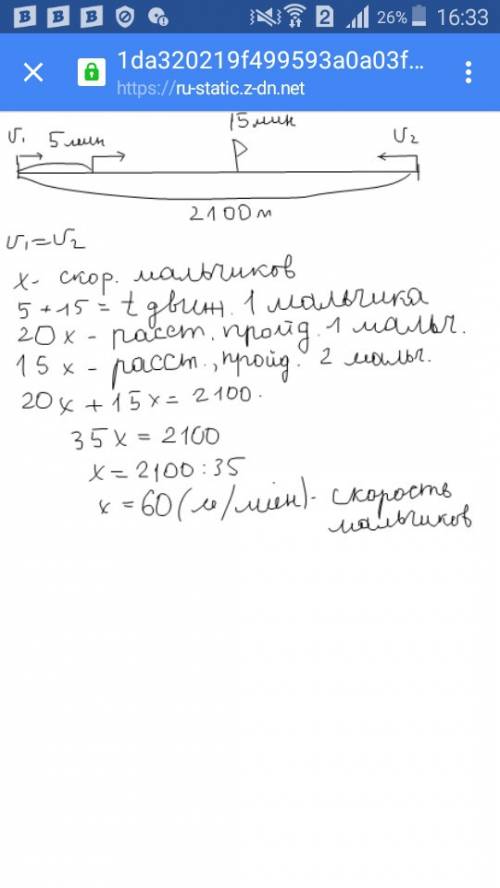 2 26% 16:33
1da320219f499593a0a03f...
https://ru-static.z-dn.net
15мин
V₁ 5мин V₂
2100м
V₁=V₂
x- скор. мальчиков
5+15= t движ. 1 мальчика
20x - расст. пройд. 1 мальч.
15x - расст., пройд. 2 мальч.
20x + 15x = 2100.
35x = 2100
x = 2100:35
x = 60 (м/мін)- скорость
мальчиков